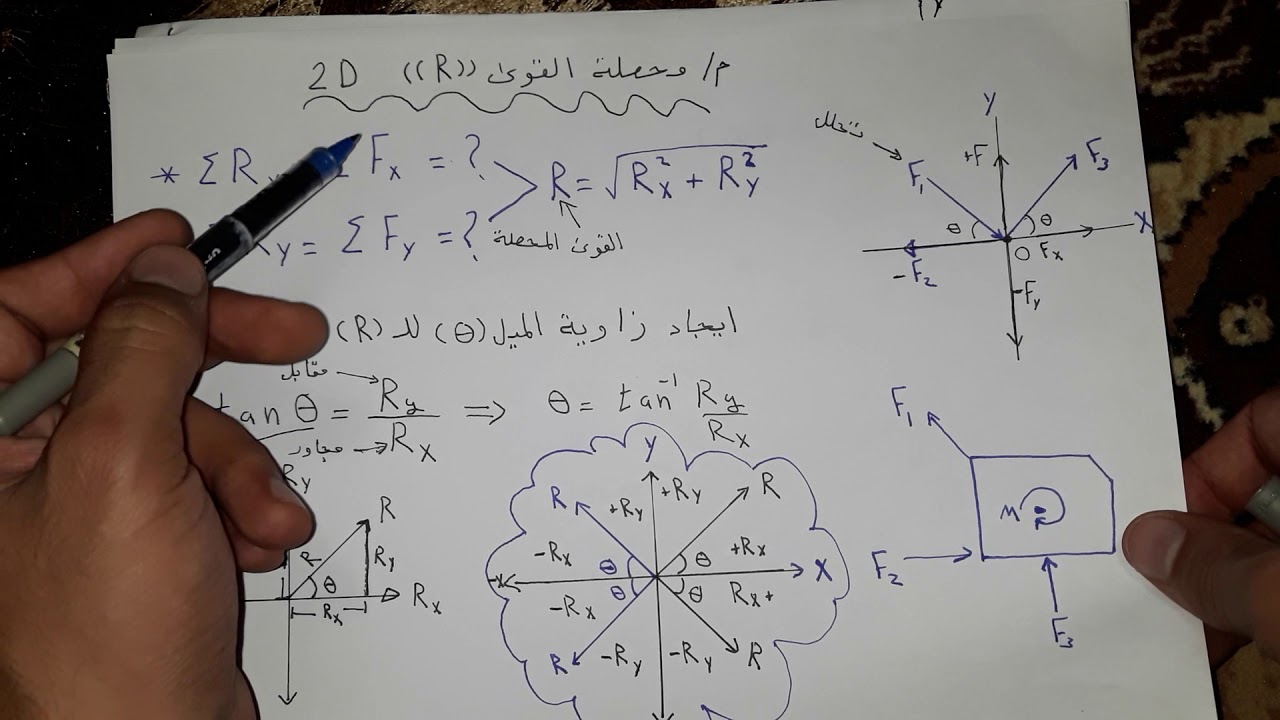 م/ محصلة القوى ((R)) 2D
* ΣR Fx = ?
R = √Rx² + Ry²
Ry = ΣFy = ?
القوى المحصلة
ايجاد زاوية الميل (θ) للـ (R)
مقابل
tan θ = Ry/Rx ⟹ θ = tan⁻¹ Ry/Rx
مجاور
Ry
R
R
Ry
θ
Rx
Rx
Y
R
+Ry
+Ry
R
-Rx
θ
θ
+Rx
-X
X
-Rx
θ
θ
Rx+
R
-Ry
-Ry
R
Y
تحلل
F₁
+F
F₃
θ
θ
X
-F₂
O
Fx
-Fy
F₁
M
F₂
F₃